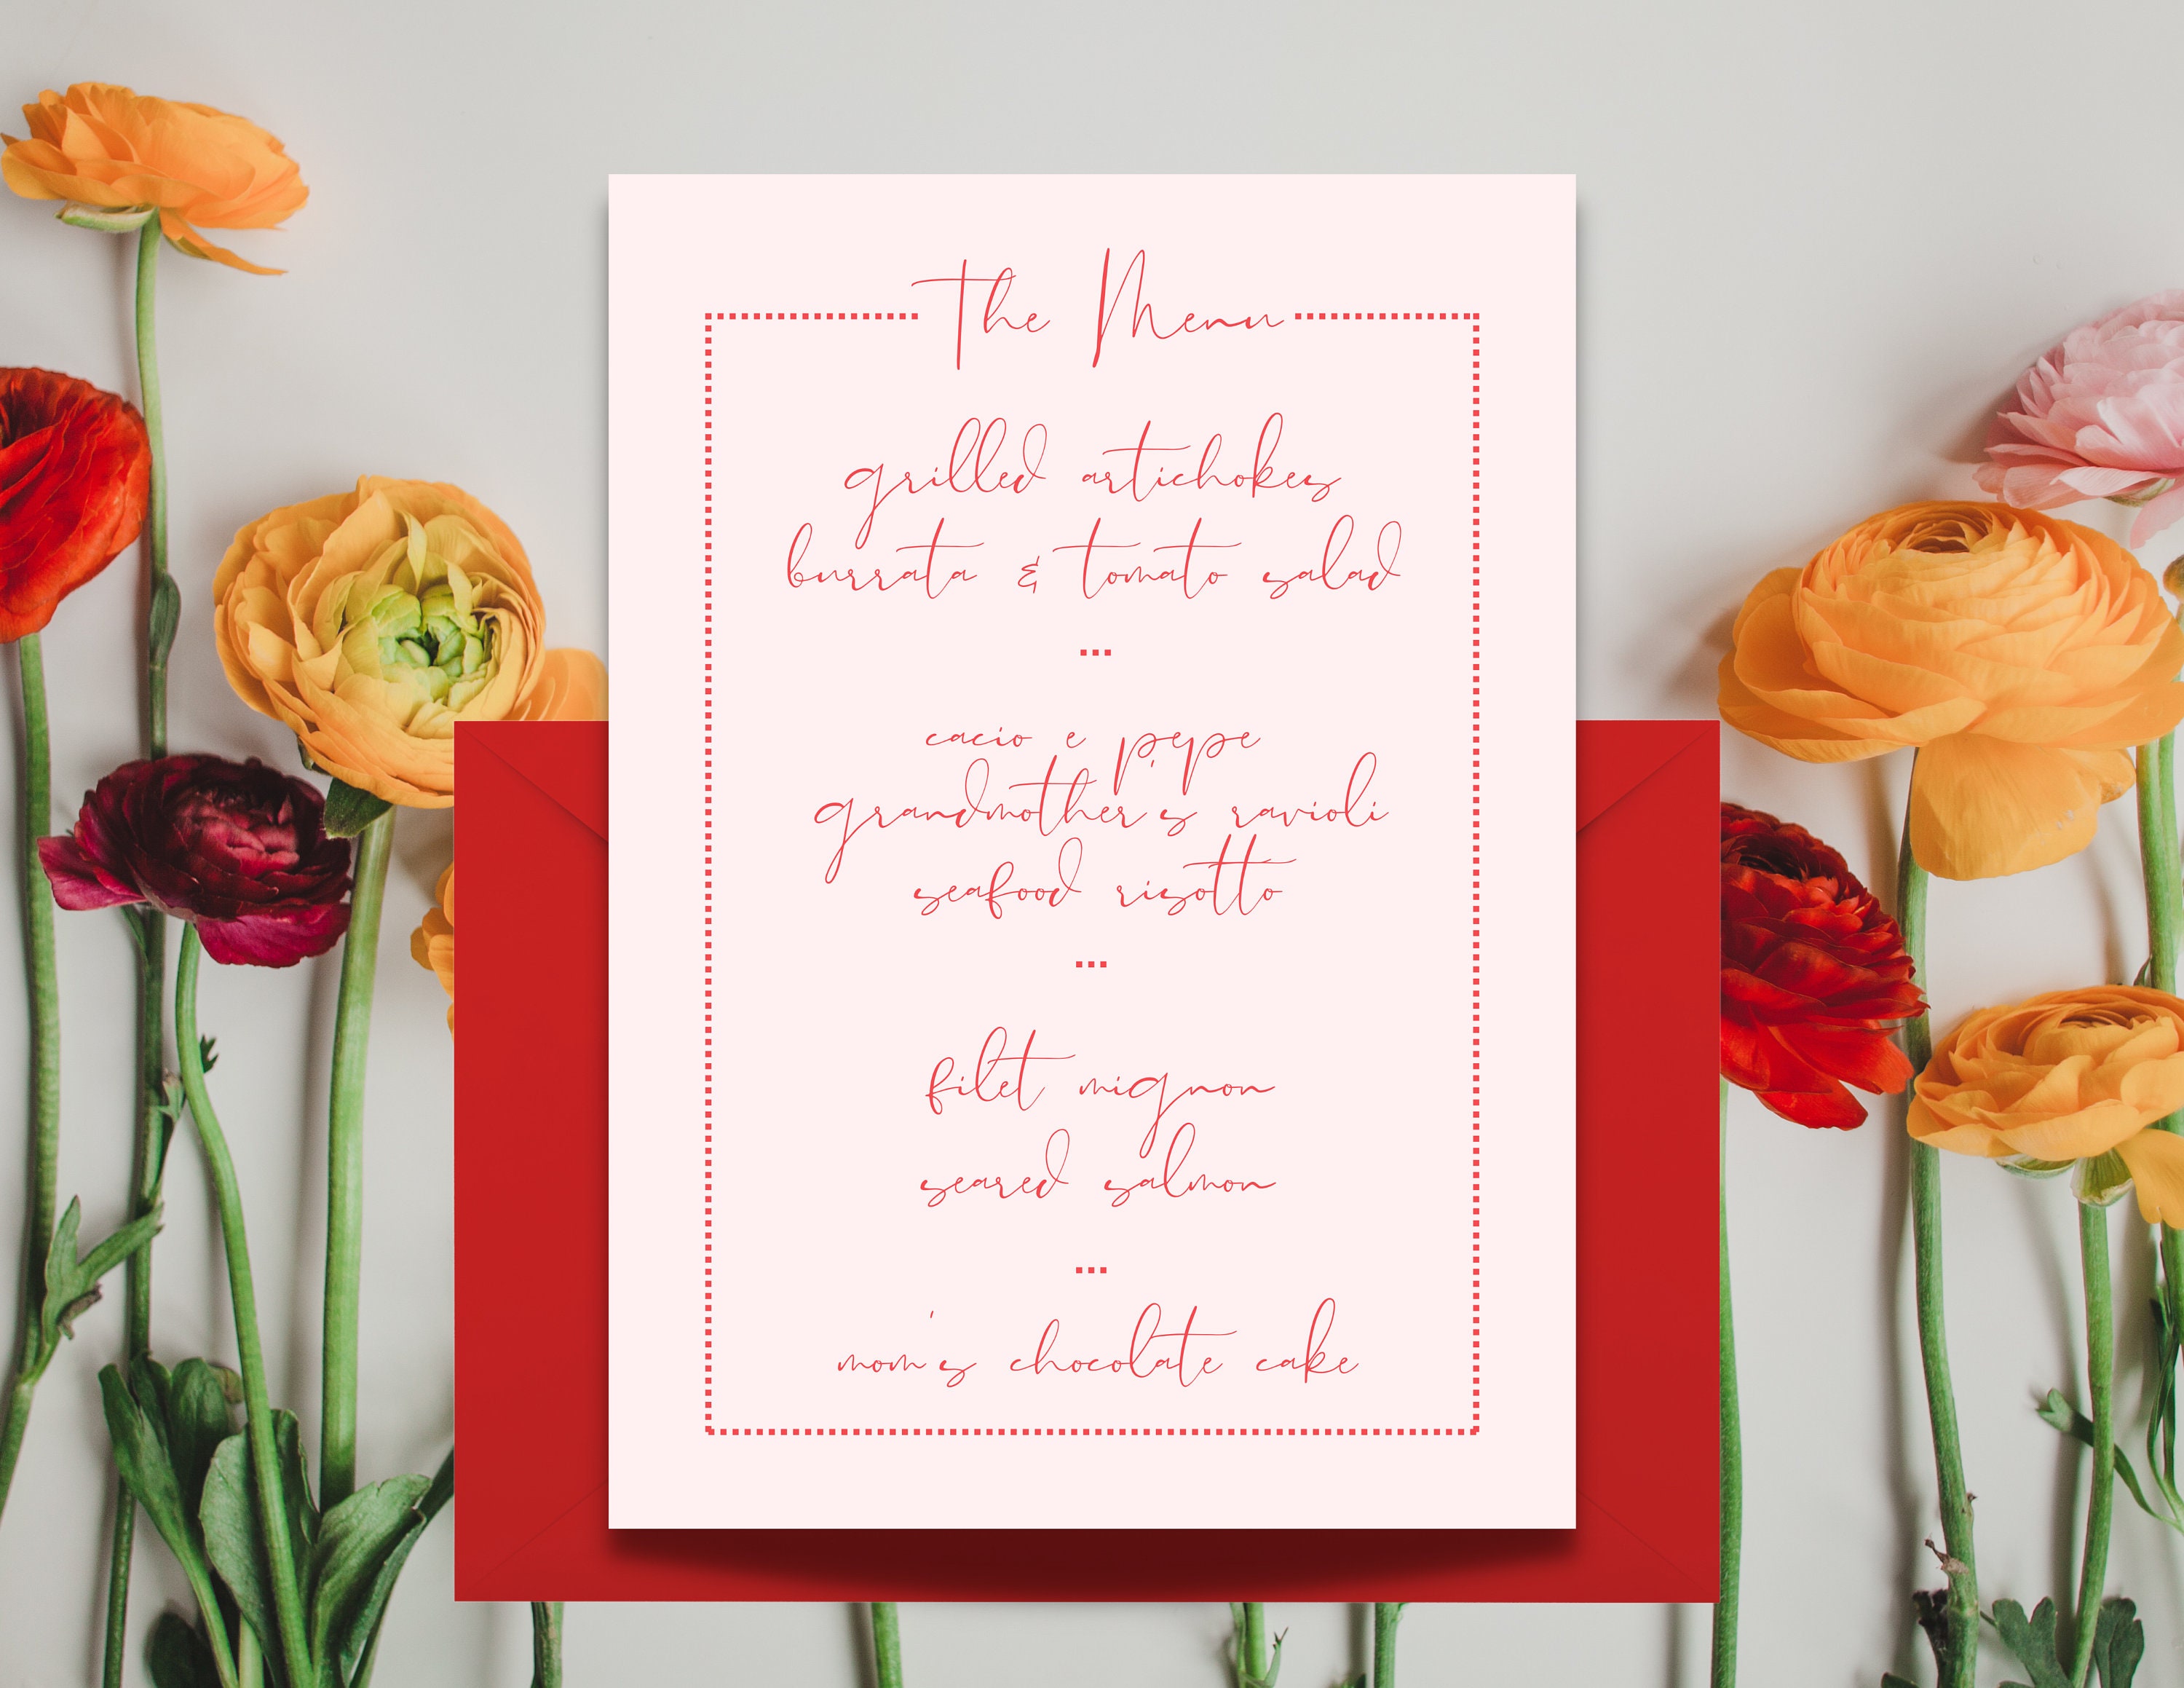 The Menu
grilled artichokes
burrata & tomato salad
...
cacio e pepe
grandmother's ravioli
seafood risotto
...
filet mignon
seared salmon
...
mom's chocolate cake